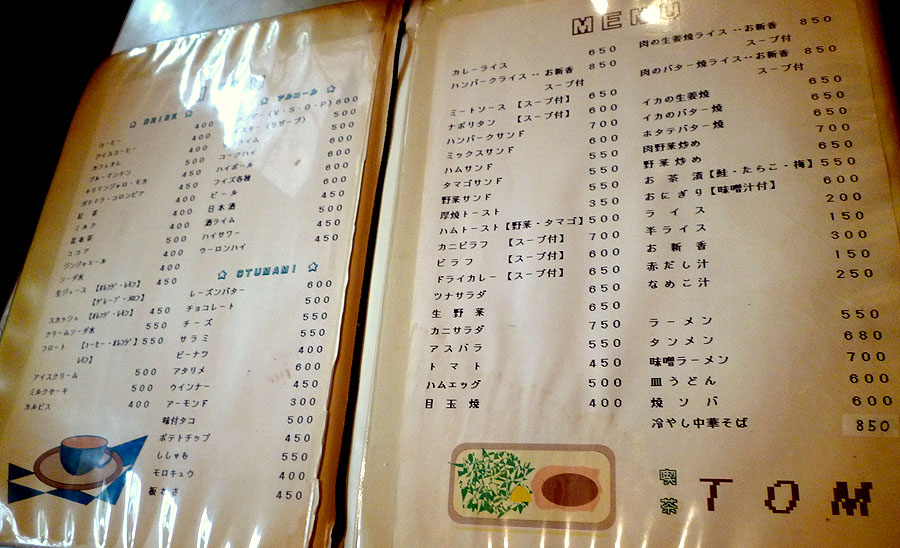 ☆ DRINK ☆
コーヒー 400
アイスコーヒー 400
カフェオレ 500
ブルーマンテン
キリマンジャロ・モカ 450
ガテマラ・コロンビア 450
紅茶 400
ミルク 400
昆布茶
ココア 500
ジンジャエール 400
ソーダ水 400
生ジュース【オレンジ・レモン】 450
【グレープ・メロン】
スカッシュ【オレンジ・レモン】 450
クリームソーダ水 550
フロート【コーヒー・オレンジ・ 550
レモン】
アイスクリーム 500
ミルクセーキ 500
カルピス 400
☆ アルコール ☆
(V・S・O・P) 600
(リザーブ) 500
ライム 500
コークハイ 500
ハイボール 500
フィズ各種 500
ビール 450
日本酒
酒ライム 450
ハイサワー 500
ウーロンハイ 450
☆ OTUMAMI ☆
レーズンバター 600
チョコレート 500
チーズ 550
サラミ 550
ピーナツ 400
アタリメ 600
ウインナー 450
アーモンド 300
味付タコ 500
ポテトチップ 450
ししゃも 550
モロキュウ 400
板わさ 450
MENU
カレーライス 650
ハンバークライス‥お新香 850
スープ付
ミートソース【スープ付】 650
ナポリタン【スープ付】 600
ハンバークサンド 700
ミックスサンド 600
ハムサンド 550
タマゴサンド 550
野菜サンド 550
厚焼トースト 350
ハムトースト【野菜・タマゴ】 500
カニピラフ【スープ付】 700
ピラフ【スープ付】 600
ドライカレー【スープ付】 650
ツナサラダ 650
生野菜 650
カニサラダ 750
アスパラ 550
トマト 450
ハムエッグ 500
目玉焼 400
肉の生姜焼ライス‥お新香 850
スープ付
肉のバター焼ライス‥お新香 850
スープ付
イカの生姜焼 650
イカのバター焼 650
ホタテバター焼 700
肉野菜炒め 650
野菜炒め 550
お茶漬【鮭・たらこ・梅】 550
おにぎり【味噌汁付】
ライス 200
半ライス 150
お新香 300
赤だし汁 150
なめこ汁 250
ラーメン 550
タンメン 680
味噌ラーメン 700
皿うどん 600
焼ソバ 600
冷やし中華そば 850
喫茶 TOM